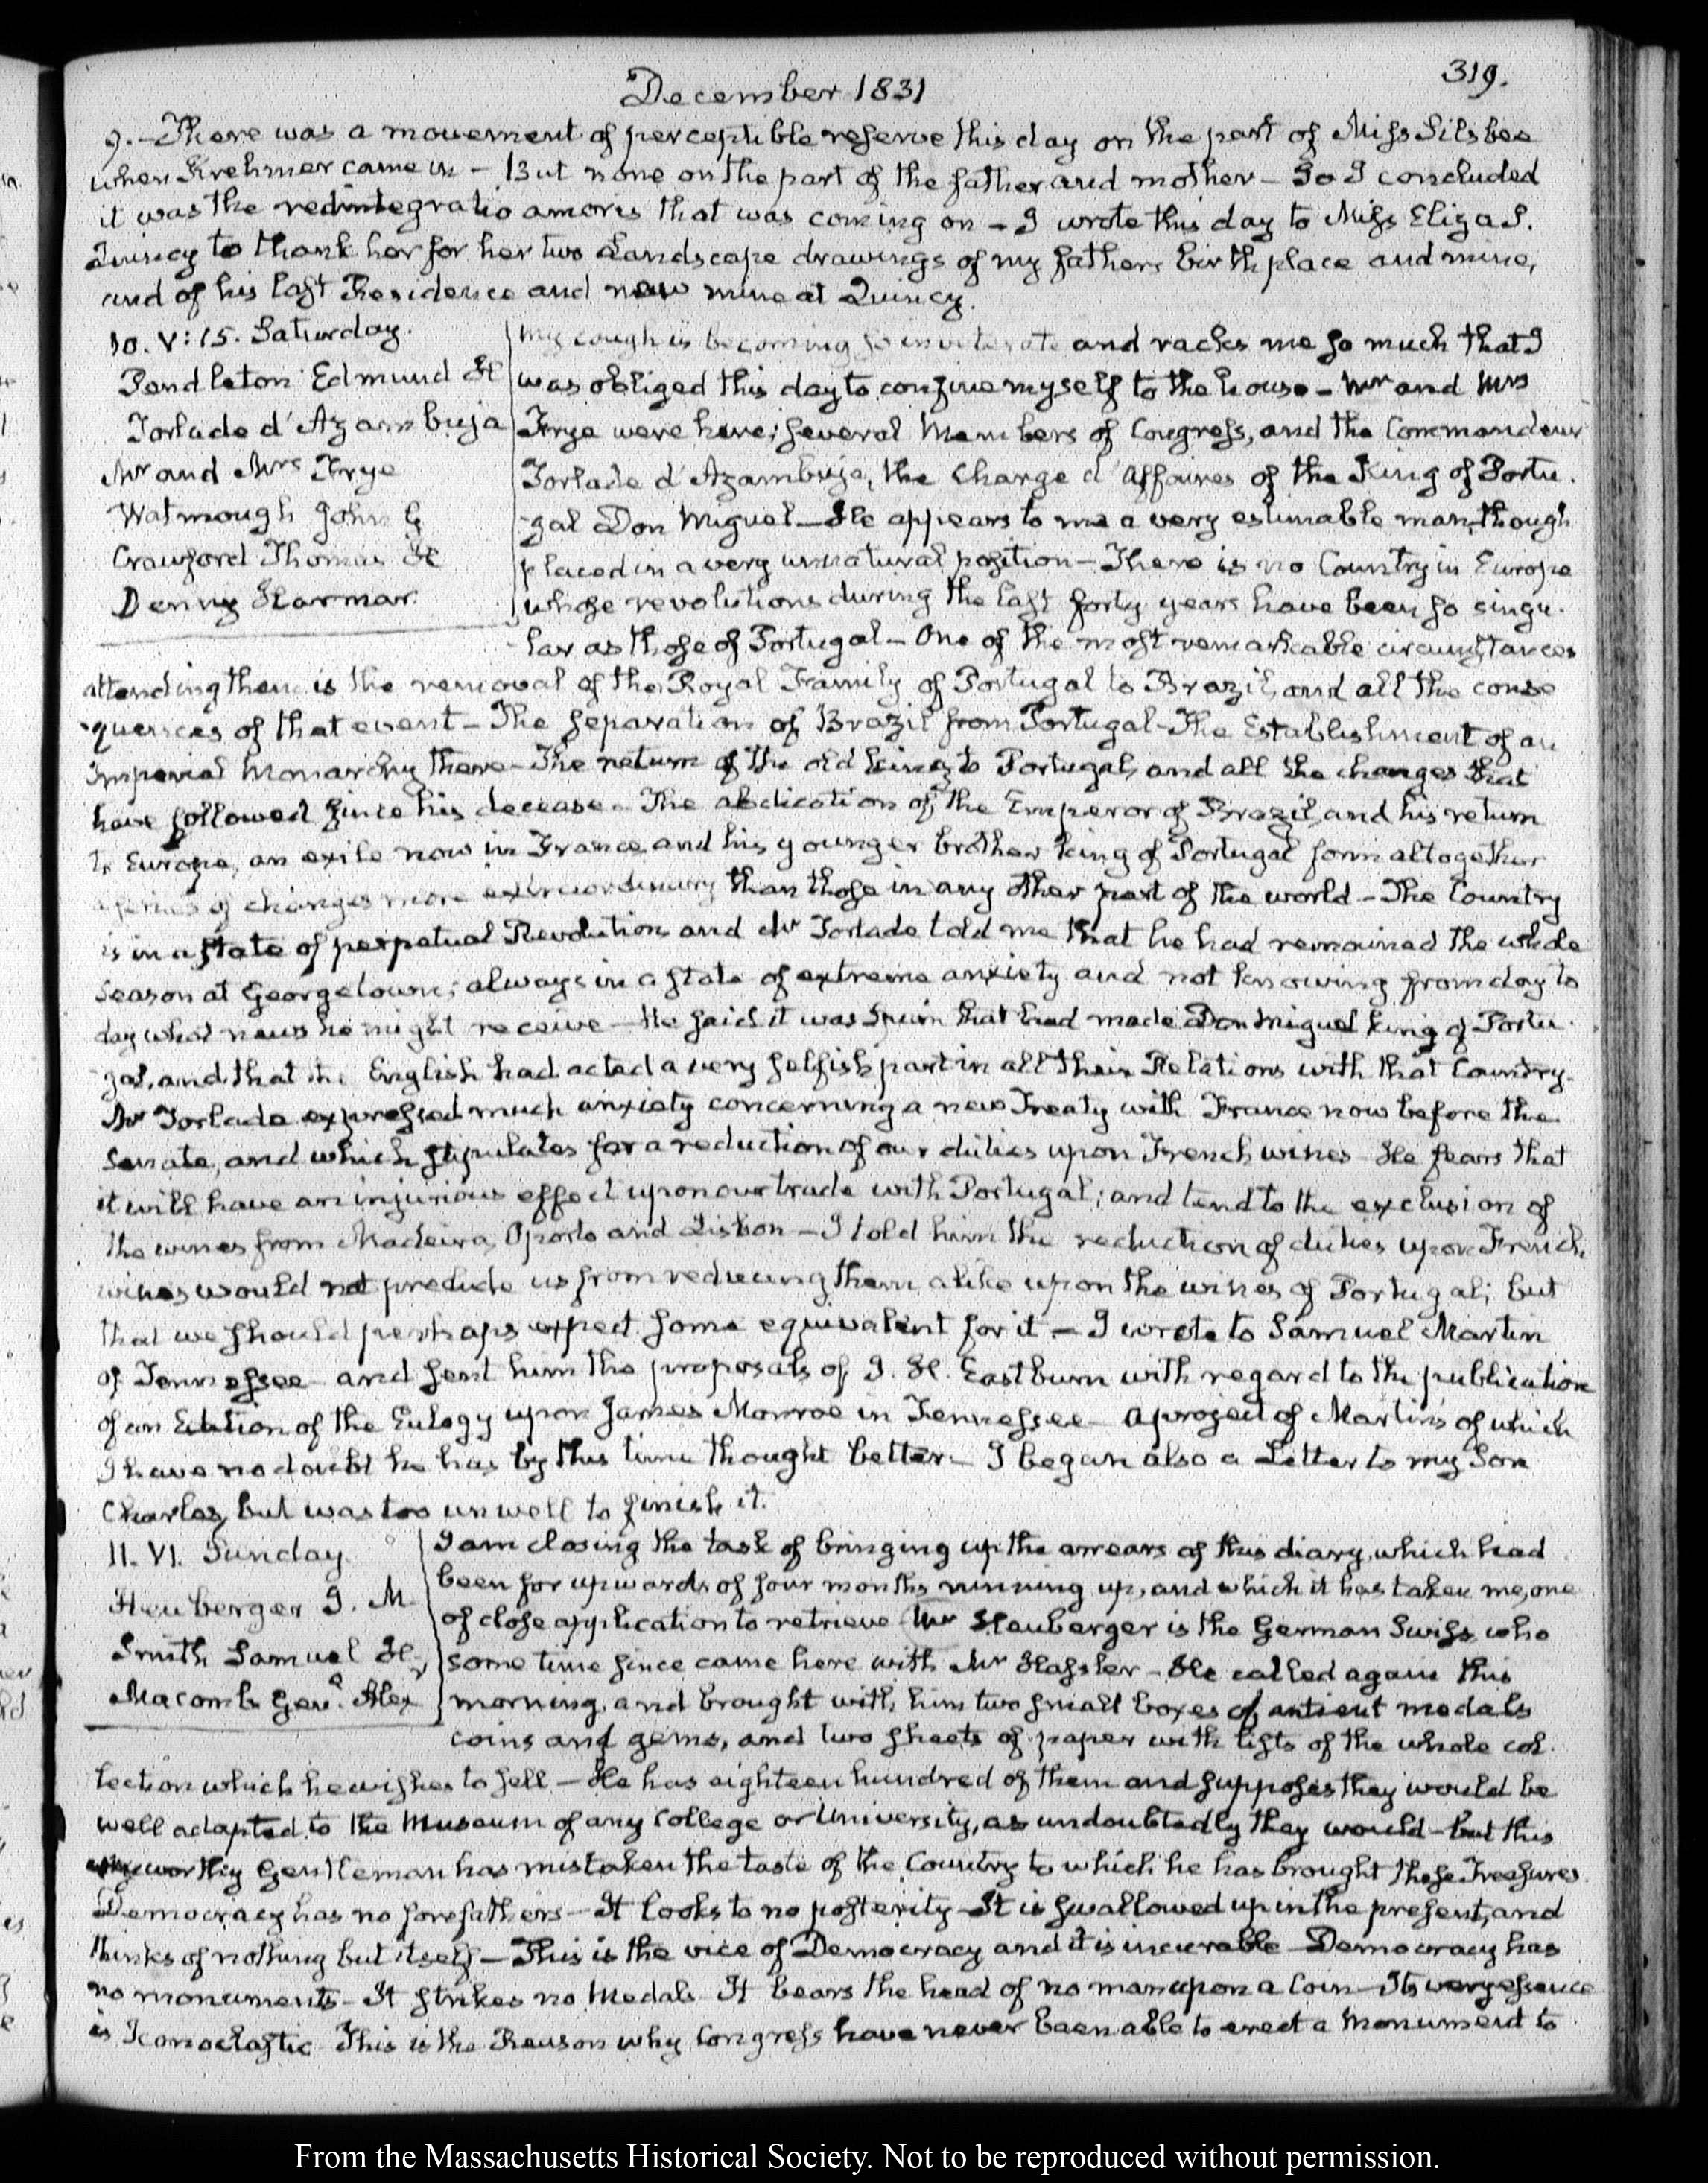 December 1831
319.
9.— There was a movement of perceptible reserve this day on the part of Miss Silsbee
when Krehmer came in — But none on the part of the father and mother — So I concluded
it was the redintegratio amoris that was coming on — I wrote this day to Miss Eliza S.
Quincy to thank her for her two Landscape drawings of my fathers birth place and mine,
and of his last Residence and now mine at Quincy.
10. V:15. Saturday.
Pendleton Edmund H
Torlade d'Azambuja
Mr and Mrs Frye
Watmough John G
Crawford Thomas H
Denny Harmar.
My cough is becoming so inveterate and racks me so much that I
was obliged this day to confine myself to the house — Mr and Mrs
Frye were here; several Members of Congress, and the Commandeur
Torlade d'Azambuja, the Charge d'Affaires of the King of Portu-
-gal Don Miguel — He appears to me a very estimable man, though
placed in a very unnatural position — There is no Country in Europe
whose revolutions during the last forty years have been so singu-
-lar as those of Portugal — One of the most remarkable circumstances
attending them is the removal of the Royal Family of Portugal to Brazil, and all the conse
-quences of that event — The separation of Brazil from Portugal — The Establishment of an
Imperial Monarchy there — The return of the old king to Portugal, and all the changes that
have followed since his decease — The abdication of the Emperor of Brazil, and his return
to Europe, an exile now in France, and his younger brother king of Portugal form altogether
a series of changes more extraordinary than those in any other part of the world — The Country
is in a state of perpetual Revolution, and Mr Torlade told me that he had remained the whole
season at Georgetown; always in a state of extreme anxiety and not knowing from day to
day what news he might receive — He said it was Spain that had made Don Miguel king of Portu-
-gal, and that the English had acted a very selfish part in all their Relations with that Country.
Mr Torlade expressed much anxiety concerning a new Treaty with France now before the
Senate, and which stipulates for a reduction of our duties upon French wines — He fears that
it will have an injurious effect upon our trade with Portugal; and tend to the exclusion of
the wines from Madeira, Oporto and Lisbon — I told him the reduction of duties upon French
wines would not preclude us from reducing them alike upon the wines of Portugal; but
that we should perhaps expect some equivalent for it — I wrote to Samuel Martin
of Tennessee and sent him the proposals of J. H. Eastburn with regard to the publication
of an Edition of the Eulogy upon James Monroe in Tennessee — a project of Martin's of which
I have no doubt he has by this time thought better — I began also a Letter to my Son
Charles, but was too unwell to finish it.
11. VI. Sunday
Heuberger J. M
Smith Samuel H.
Macomb Genl. Alex
I am closing the task of bringing up the arrears of this diary, which had
been for upwards of four months running up, and which it has taken me, one
of close application to retrieve Mr Heuberger is the German Swiss, who
some time since came here with Mr Hassler — He called again this
morning, and brought with him two small boxes of antient medals
coins and gems, and two sheets of paper with lists of the whole col-
lection which he wishes to sell — He has eighteen hundred of them and supposes they would be
well adapted to the Museum of any College or University, as undoubtedly they would — but this
worthy Gentleman has mistaken the taste of the Country to which he has brought these Treasures.
Democracy has no forefathers — It looks to no posterity — It is swallowed up in the present, and
thinks of nothing but itself — This is the vice of Democracy and it is incurable — Democracy has
no monuments — It strikes no Medals — It bears the head of no man upon a Coin — Its very essence
is Iconoclastic — This is the Reason why Congress have never been able to erect a Monument to
From the Massachusetts Historical Society. Not to be reproduced without permission.